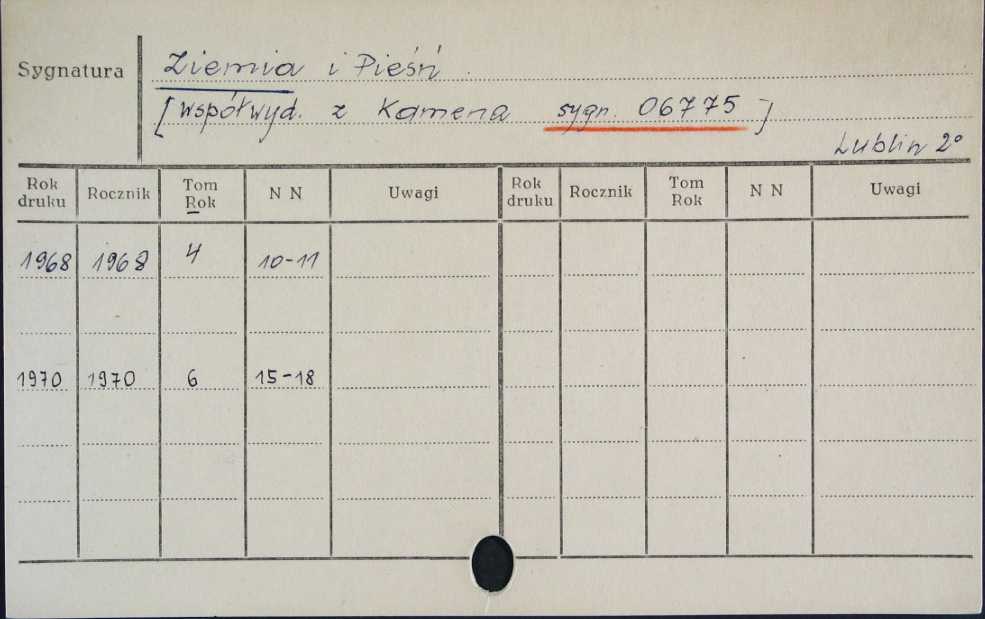 Sygnatura
Ziemia i Pieśń
[współwyd. z Kamena sygn. 06775]
Lublin 2°
Rok druku Rocznik Tom Rok N N Uwagi Rok druku Rocznik Tom Rok N N Uwagi
1968 1968 4 10-11
1970 1970 6 15-18